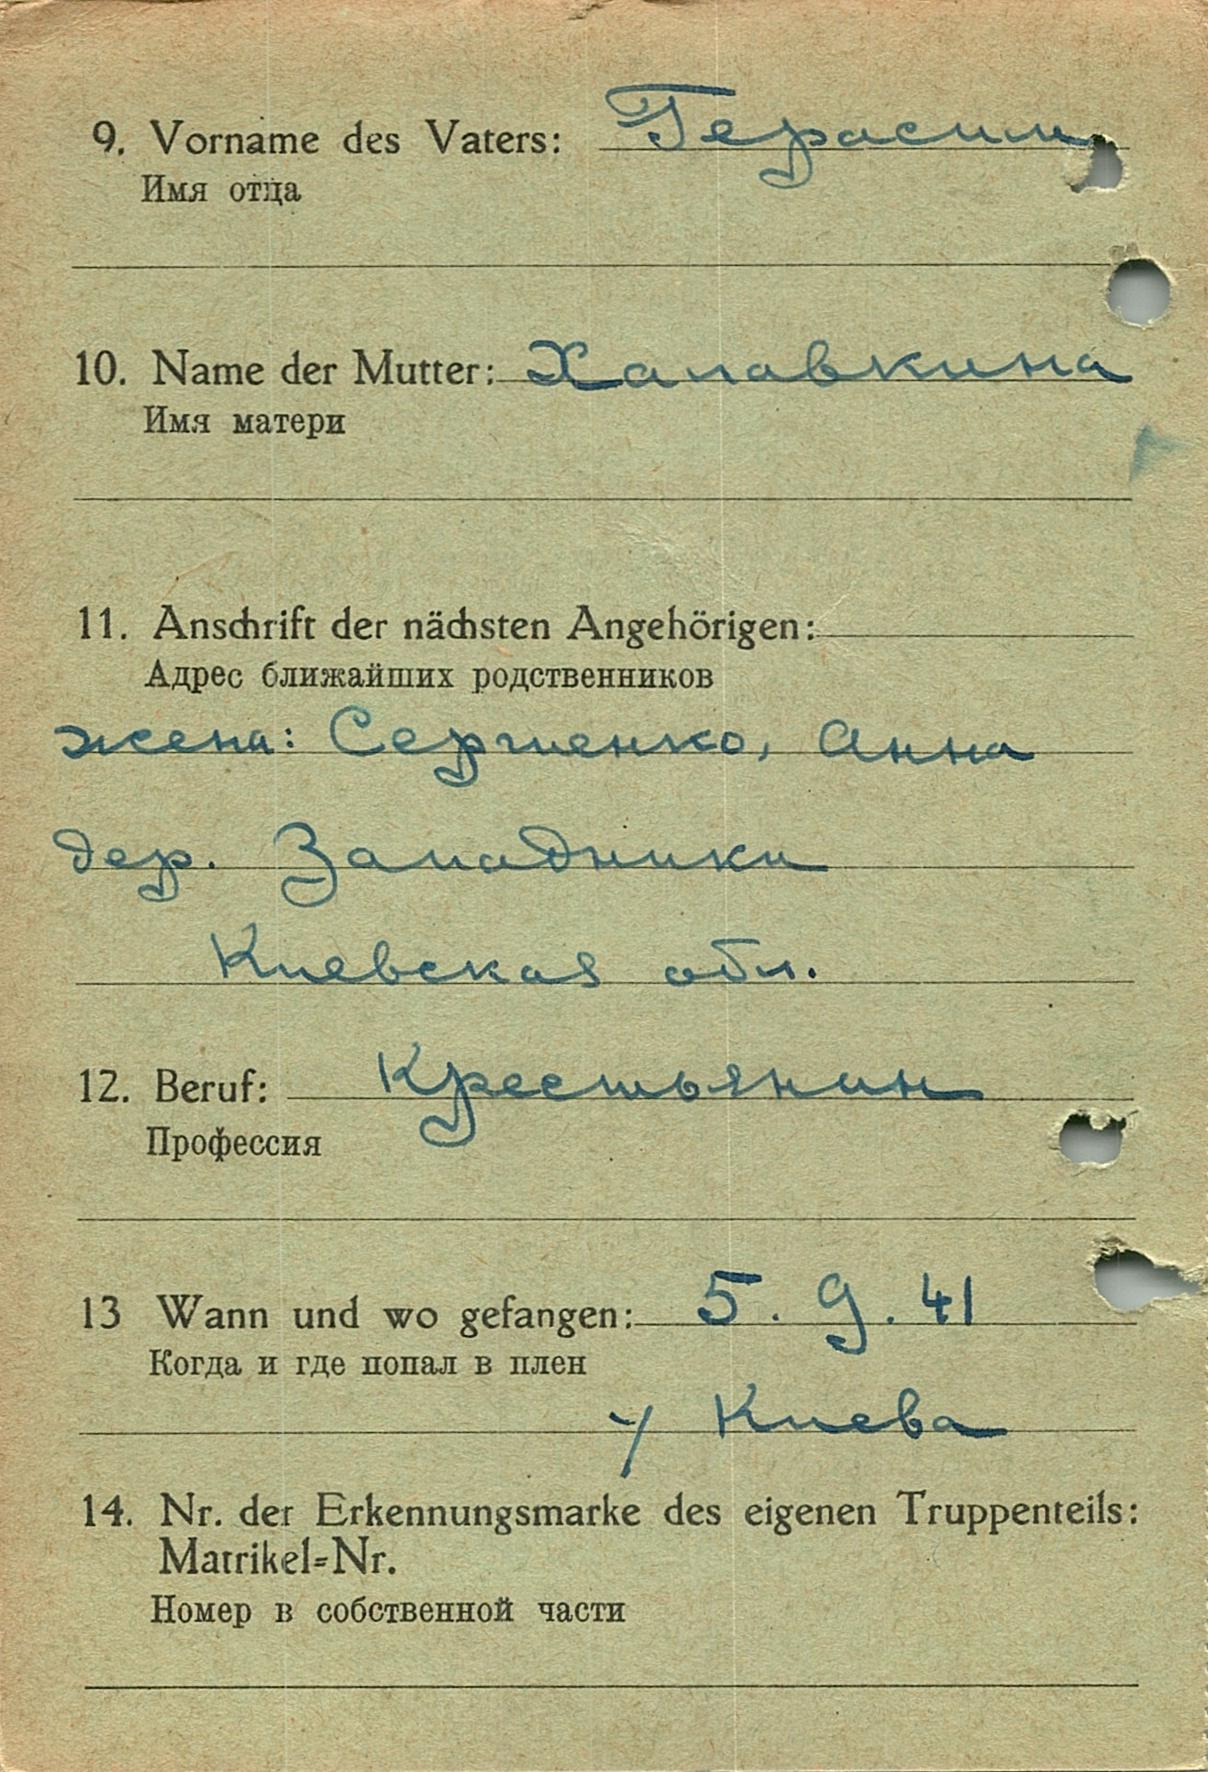 9. Vorname des Vaters: Герасим
Имя отца
10. Name der Mutter:
Имя матери
11. Anschrift der nächsten Angehörigen:
Адрес ближайших родственников
жена: Сергиенко, Анна
дер. Западники
Киевская обл.
12. Beruf: Крестьянин
Профессия
13 Wann und wo gefangen: 5. 9. 41
Когда и где попал в плен
у Киева
14. Nr. der Erkennungsmarke des eigenen Truppenteils:
Matrikel=Nr.
Номер в собственной части